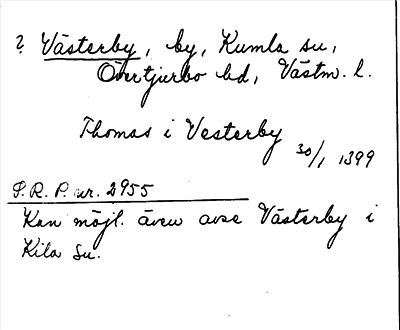 ? Västerby, by, Kumla sn,
Övertjurbo hd, Västm. l.
Thomas i Vesterby
30/1 1399
S.R.P. nr. 2955
Kan möjl. även avse Västerby i
Kila sn.